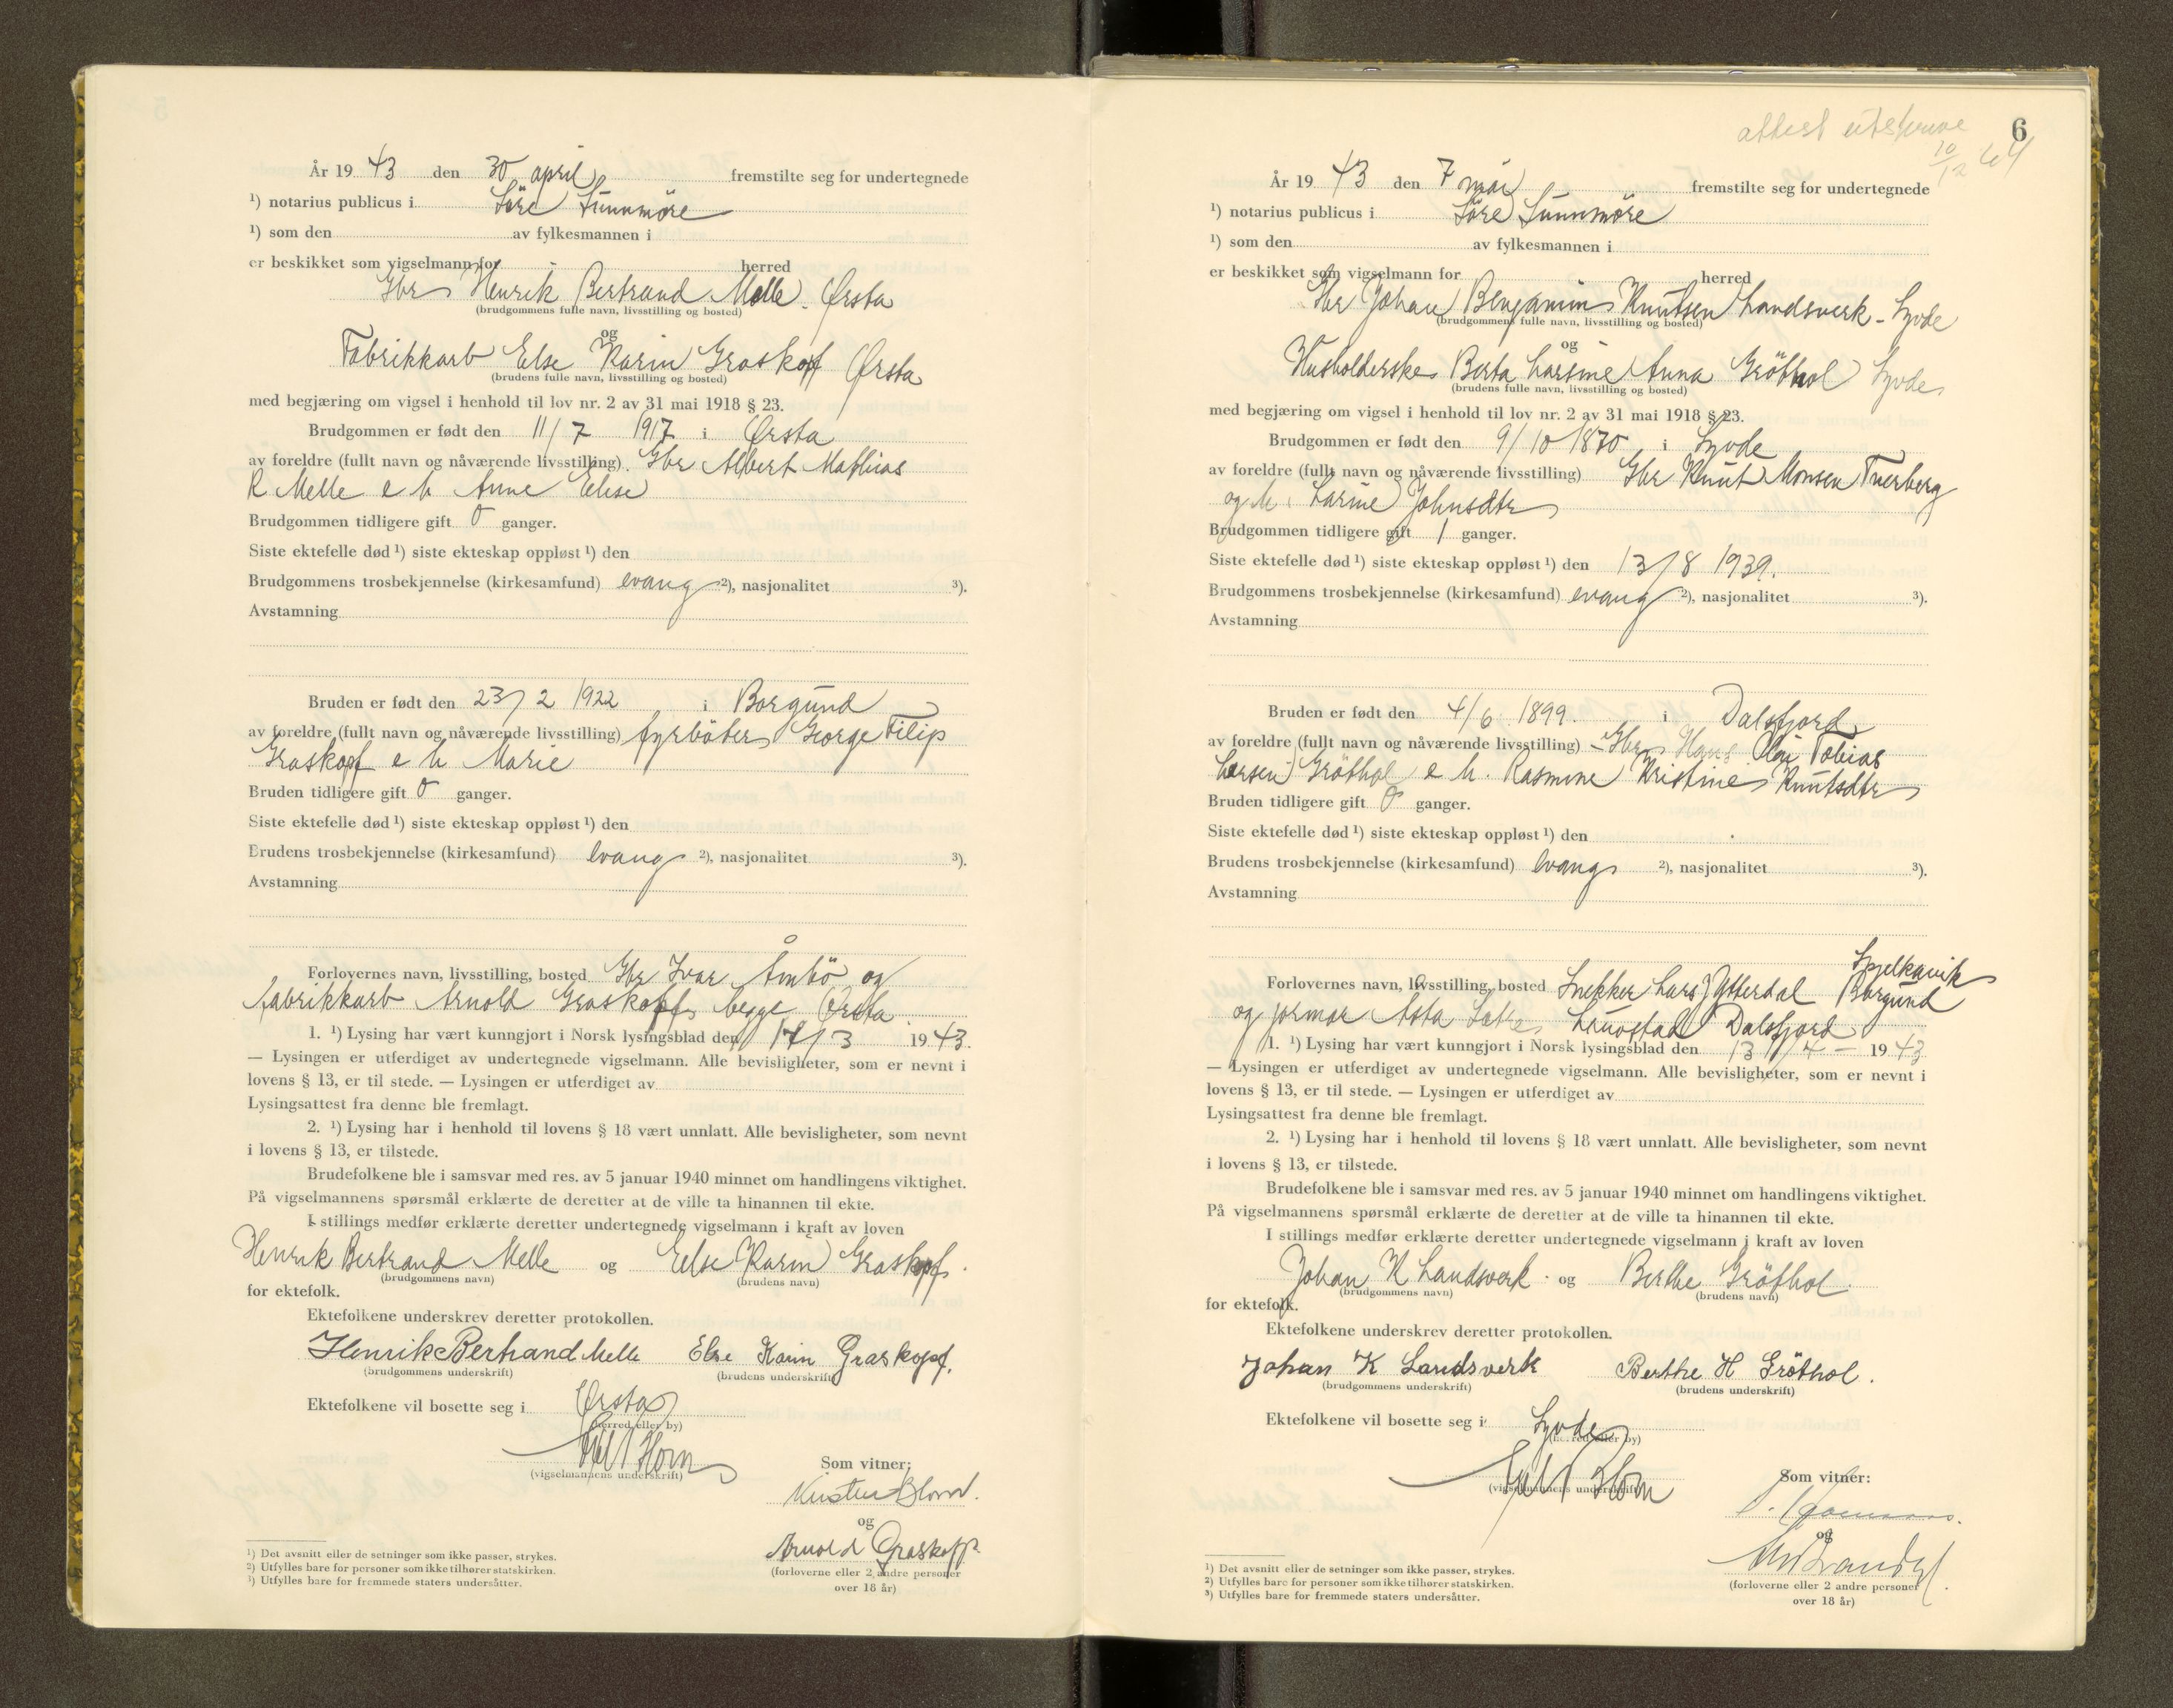 År 1943 den 30 april fremstilte seg for undertegnede
¹) notarius publicus i Söre Sunnmöre
¹) som den av fylkesmannen i
er beskikket som vigselmann for herred
Gbr Henrik Bertrand Melle. Ørsta
(brudgommens fulle navn, livsstilling og bosted)
og
Fabrikkarb Else Karin Graskopf Ørsta
(brudens fulle navn, livsstilling og bosted)
med begjæring om vigsel i henhold til lov nr. 2 av 31 mai 1918 § 23.
Brudgommen er født den 11/7 1917 i Ørsta
av foreldre (fullt navn og nåværende livsstilling) Gbr Albert Mathias
R Melle e h Anne Elise
Brudgommen tidligere gift 0 ganger.
Siste ektefelle død ¹) siste ekteskap oppløst ¹) den
Brudgommens trosbekjennelse (kirkesamfund) evang ²), nasjonalitet ³).
Avstamning
Bruden er født den 23/2 1922 i Borgund
av foreldre (fullt navn og nåværende livsstilling) fyrböter George Filip
Graskopf e h Marie
Bruden tidligere gift 0 ganger.
Siste ektefelle død ¹) siste ekteskap oppløst ¹) den
Brudens trosbekjennelse (kirkesamfund) evang ²), nasjonalitet ³).
Avstamning
Forlovernes navn, livsstilling, bosted Gbr Ivar Åmbö og
fabrikkarb Arnold Graskopf begge Ørsta
1. ¹) Lysing har vært kunngjort i Norsk lysingsblad den 17/3 1943.
— Lysingen er utferdiget av undertegnede vigselmann. Alle bevisligheter, som er nevnt i
lovens § 13, er til stede. — Lysingen er utferdiget av
Lysingsattest fra denne ble fremlagt.
2. ¹) Lysing har i henhold til lovens § 18 vært unnlatt. Alle bevisligheter, som nevnt
i lovens § 13, er tilstede.
Brudefolkene ble i samsvar med res. av 5 januar 1940 minnet om handlingens viktighet.
På vigselmannens spørsmål erklærte de deretter at de ville ta hinannen til ekte.
I stillings medfør erklærte deretter undertegnede vigselmann i kraft av loven
Henrik Bertrand Melle og Else Karin Graskopf.
(brudgommens navn) (brudens navn)
for ektefolk.
Ektefolkene underskrev deretter protokollen.
Henrik Bertrand Melle Else Karin Graskopf.
(brudgommens underskrift) (brudens underskrift)
Ektefolkene vil bosette seg i Ørsta
(herred eller by)
Horn
(vigselmannens underskrift)
Som vitner:
Kirsten
og
Arnold Graskopf
(forloverne eller 2 andre personer
over 18 år)
¹) Det avsnitt eller de setninger som ikke passer, strykes.
²) Utfylles bare for personer som ikke tilhører statskirken.
³) Utfylles bare for fremmede staters undersåtter.
attest utskreve 6
10/12 64
År 1943 den 7 mai fremstilte seg for undertegnede
¹) notarius publicus i Söre Sunnmöre
¹) som den av fylkesmannen i
er beskikket som vigselmann for herred
Gbr Johan Benjamin Knutsen Landsverk - Syvde
(brudgommens fulle navn, livsstilling og bosted)
og
Husholderske Berta Larsine Anna Gröthol Syvde
(brudens fulle navn, livsstilling og bosted)
med begjæring om vigsel i henhold til lov nr. 2 av 31 mai 1918 § 23.
Brudgommen er født den 9/10 1870 i Syvde
av foreldre (fullt navn og nåværende livsstilling) Gbr Knut Monsen Tverberg
og h. Larine Johnsdtr
Brudgommen tidligere gift 1 ganger.
Siste ektefelle død ¹) siste ekteskap oppløst ¹) den 13/8 1939.
Brudgommens trosbekjennelse (kirkesamfund) evang ²), nasjonalitet ³).
Avstamning
Bruden er født den 4/6 1899. i Dalsfjord
av foreldre (fullt navn og nåværende livsstilling) - Gbr Hans Olai Tobias
Larsen Gröthol e h. Rasmine Kristine Knutsdtr
Bruden tidligere gift 0 ganger.
Siste ektefelle død ¹) siste ekteskap oppløst ¹) den
Brudens trosbekjennelse (kirkesamfund) evang ²), nasjonalitet ³).
Avstamning
Spjelkavik
Forlovernes navn, livsstilling, bosted Snekker Lars J Ytterdal Borgund
og jormor Asta Dalsfjord
1. ¹) Lysing har vært kunngjort i Norsk lysingsblad den 13/4 - 1943
— Lysingen er utferdiget av undertegnede vigselmann. Alle bevisligheter, som er nevnt i
lovens § 13, er til stede. — Lysingen er utferdiget av
Lysingsattest fra denne ble fremlagt.
2. ¹) Lysing har i henhold til lovens § 18 vært unnlatt. Alle bevisligheter, som nevnt
i lovens § 13, er tilstede.
Brudefolkene ble i samsvar med res. av 5 januar 1940 minnet om handlingens viktighet.
På vigselmannens spørsmål erklærte de deretter at de ville ta hinannen til ekte.
I stillings medfør erklærte deretter undertegnede vigselmann i kraft av loven
Johan K Landsverk. og Berthe Gröthol.
(brudgommens navn) (brudens navn)
for ektefolk.
Ektefolkene underskrev deretter protokollen.
Johan K Landsverk Berthe H Gröthol.
(brudgommens underskrift) (brudens underskrift)
Ektefolkene vil bosette seg i Syvde
(herred eller by)
Horn
(vigselmannens underskrift)
Som vitner:
og
(forloverne eller 2 andre personer
over 18 år)
¹) Det avsnitt eller de setninger som ikke passer, strykes.
²) Utfylles bare for personer som ikke tilhører statskirken.
³) Utfylles bare for fremmede staters undersåtter.